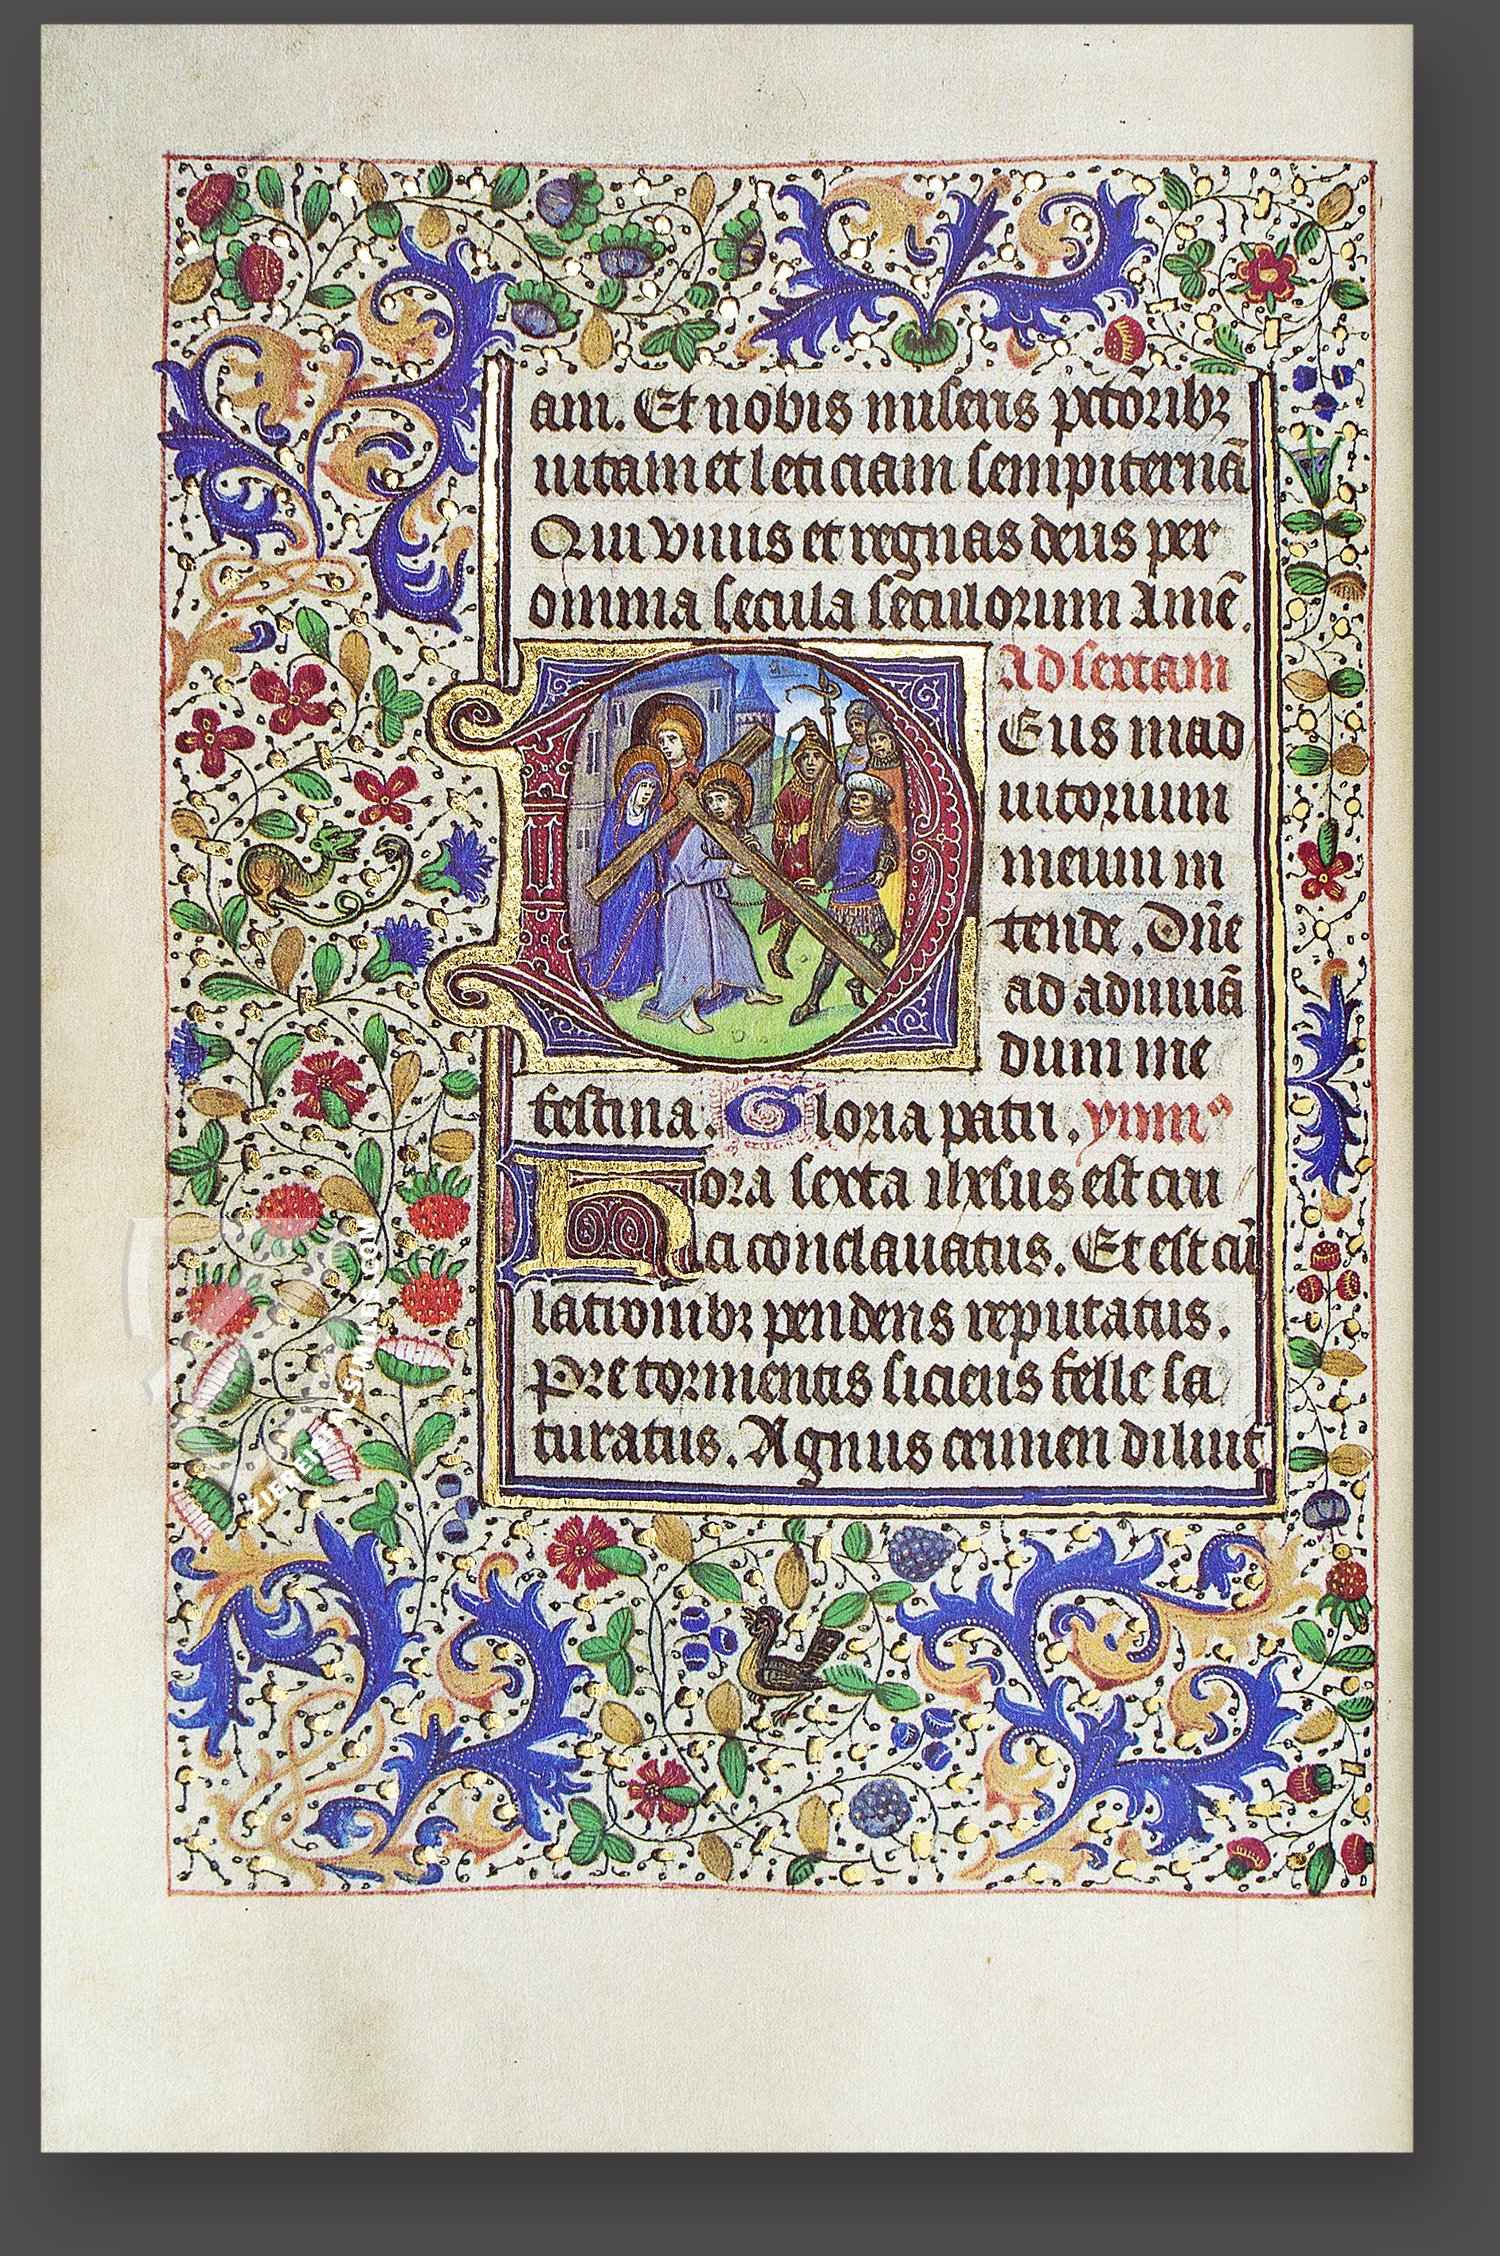 am. Et nobis miseris pctōribꝫ
uitam et leticiam sempiternā
Qui viuis et regnas deus per
omnia secula seculorum Amē.
Ad sextam
Deus in ad
iutorium
meum in
tende. Dn̄e
ad adiuuā
dum me
festina. Gloria patri. ymn⁹
Hora sexta ihesus est cru
ci conclauatus. Et est cū
latronibꝫ pendens reputatus.
Pre tormentis siciens felle sa
turatus. Agnus crimen diluit
ZIEREIS FACSIMILES.COM